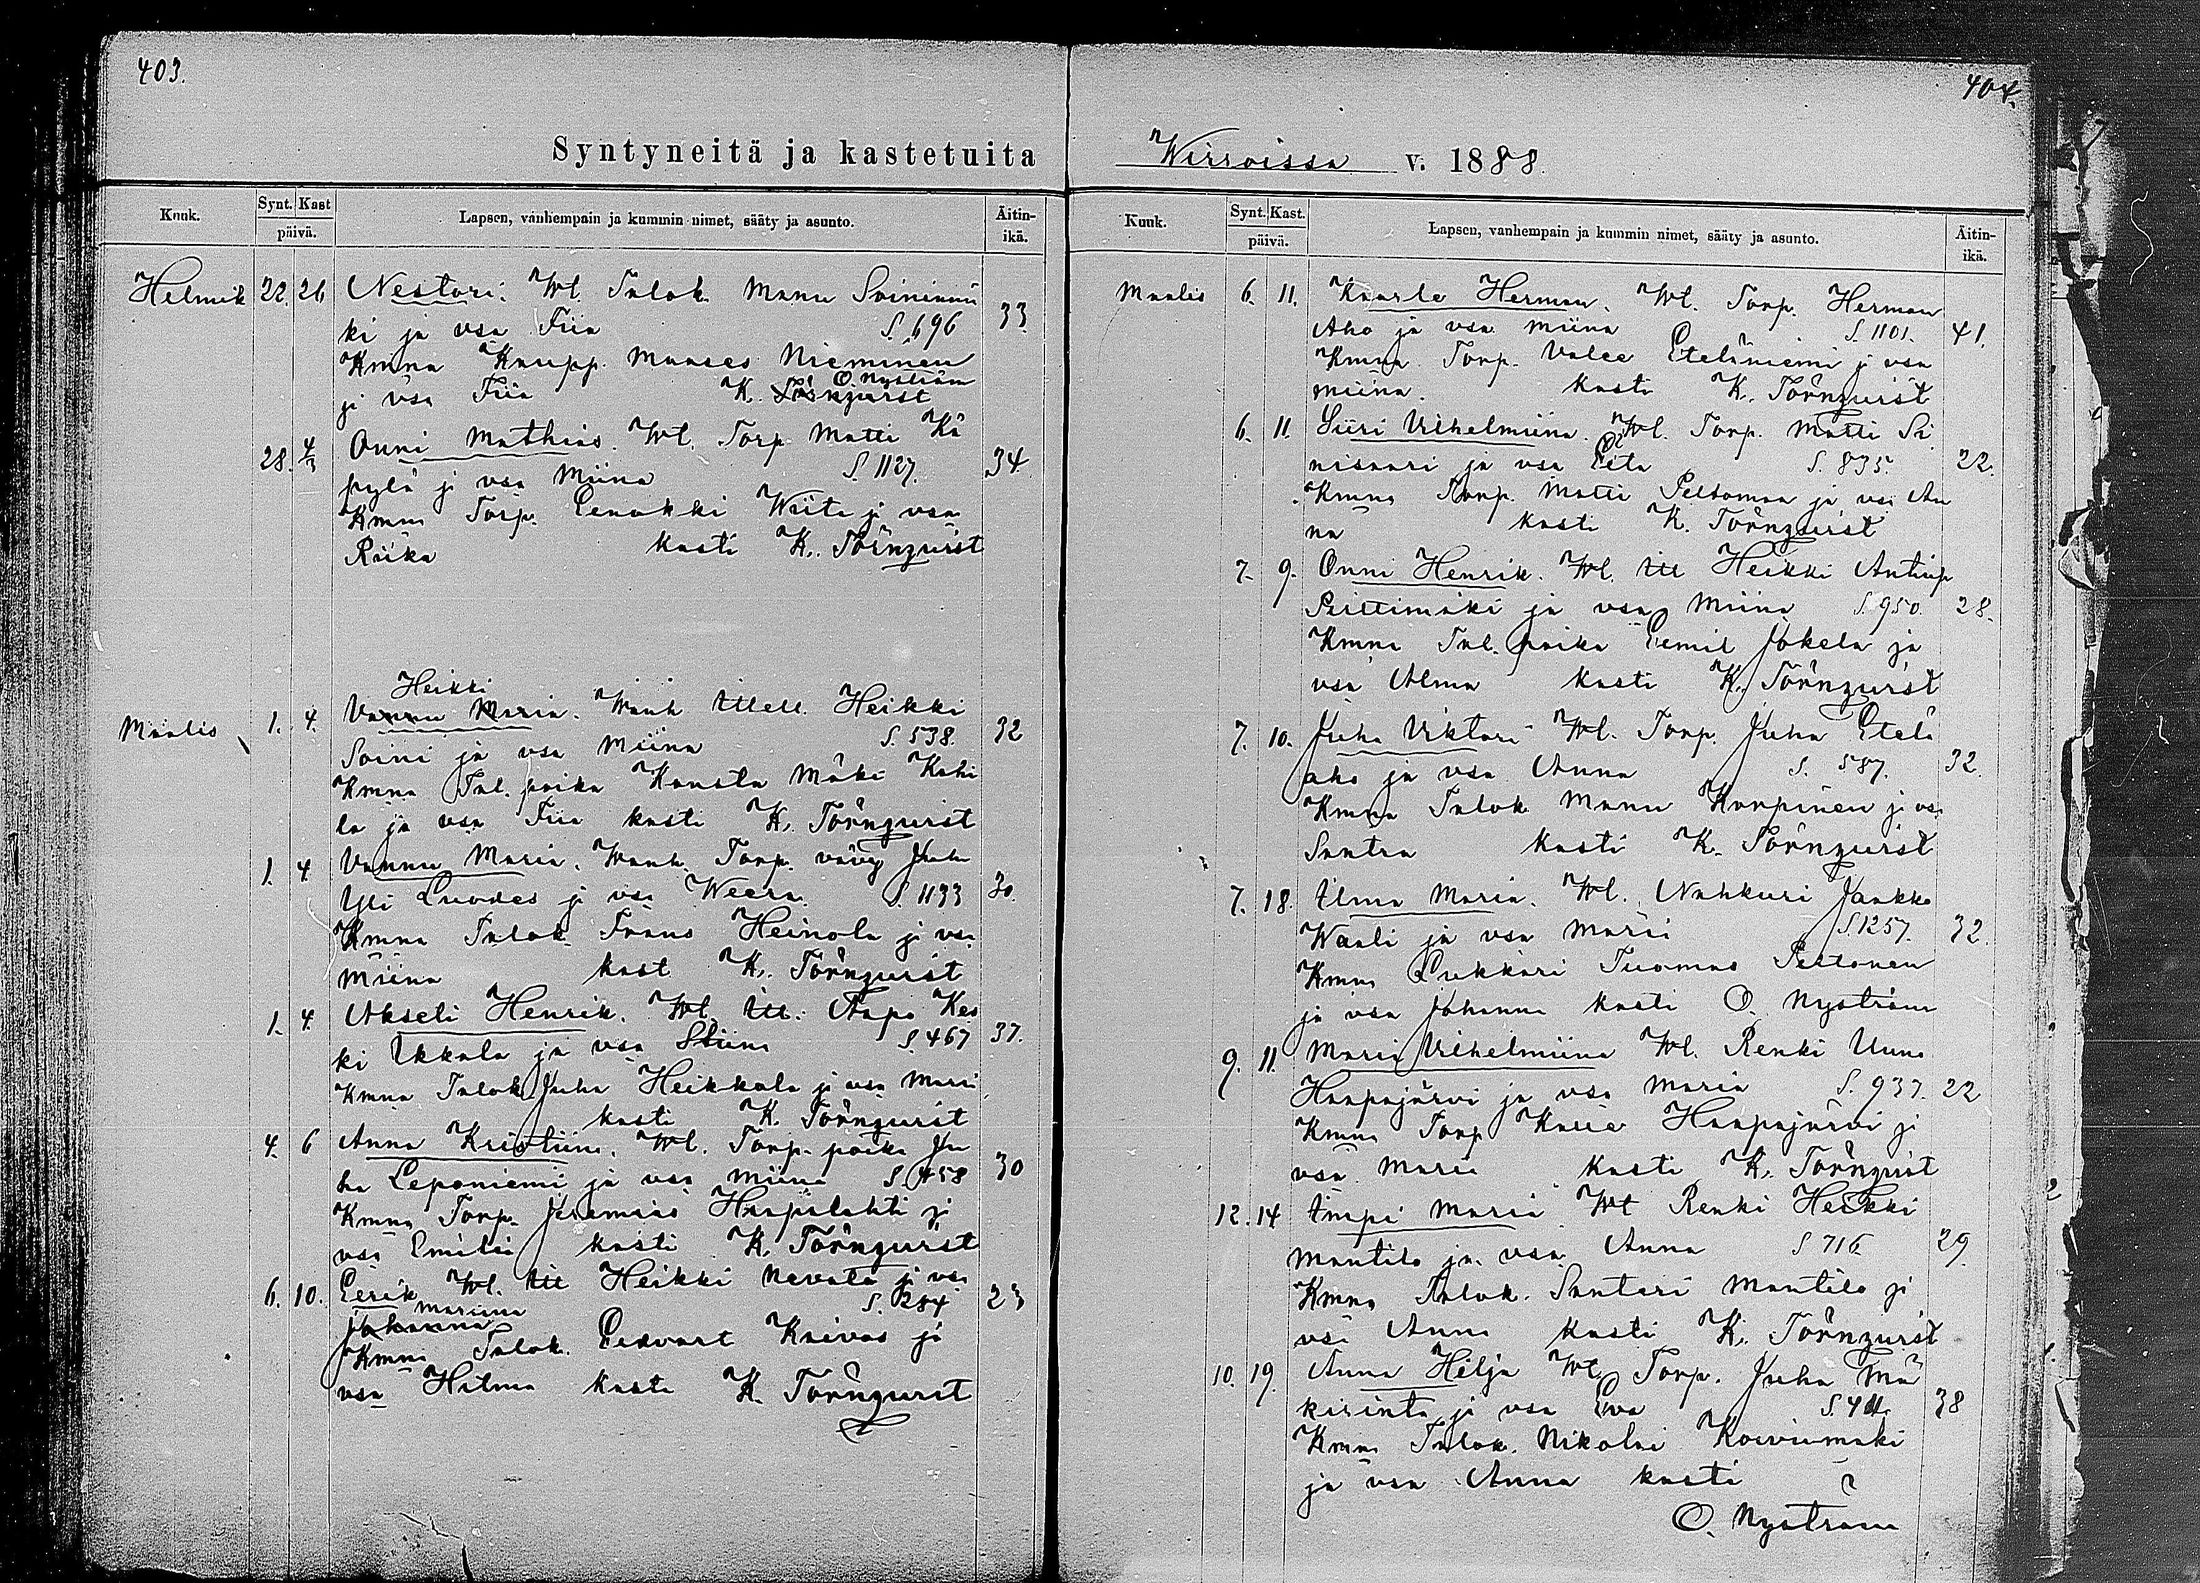 403.
Syntyneitä ja kastetuita
Kuuk. Synt. Kast päivä. Lapsen, vanhempain ja kummin nimet, sääty ja asunto. Äitin-ikä.
Helmik 22. 26 Nestori. Wl. Talok. Manu Soininmä
ki ja vsa Fiia S. 696 33
Kmna Kaupp. Manses Nieminen
O. Nyström
ja vsa Fiia K. Törnqvist
28. 4/3 Onni Mathias. Wl. Torp. Matti Kä
pylä ja vsa Miina S. 1127. 34
Kmna Torp. Eenokki Wiita ja vsa
Riika kasti K. Törnqvist
Heikki
Maalis 1. 4. Vannu Maria. Wanh Itell. Heikki
Soini ja vsa Miina S. 538. 32
Kmna Tal. poika Kaustu Mäki Kahi
la ja vsa Fiia kasti K. Törnqvist
1. 4. Vannu Maria. Wanh. Torp. vävy Juha
Yli Luodes ja vsa Weera S. 1133 30.
Kmna Talok. Frans Heinola ja vsa
Miina kast. K. Törnqvist
1. 4. Akseli Henrik. Wl. Itl. Aapo Kes
ki Ikkala ja vsa Stiina S. 467 37.
Kmna Talok Juha Heikkala ja vsa Mari
kasti K. Törnqvist
4. 6 Anna Kristiina. Wl. Torp. poika Ju
ha Leponiemi ja vsa Miina S. 458 30
Kmna Torp. Jeremias Haapalahti ja
vsa Emilia kasti K. Törnqvist
6. 10. Eerik Wl. Itl Heikki Nevala ja vsa
Mariina
Johanna S. 284 23
Kmna Talok. Eedvart Kaivos ja
vsa Hilma kasti K. Törnqvist
404.
Wirroissa v. 1888.
Kuuk. Synt. Kast. päivä. Lapsen, vanhempain ja kummin nimet, sääty ja asunto. Äitin-ikä.
Maalis 6. 11. Kaarle Herman. Wl. Torp. Herman
Aho ja vsa Miina S. 1101. 41.
Kmna Torp. Valee Eteläniemi ja vsa
Miina. kasti K. Törnqvist
6. 11. Siiri Vilhelmiina. Wl. Torp. Matti Si
nisaari ja vsa Eeta S. 835. 22.
Kmna Torp. Matti Peltomaa ja vsa An
na kasti K. Törnqvist
7. 9. Onni Henrik. Wl. Itl Heikki Antinp
Peittimäki ja vsa Miina S. 950. 28.
Kmna Tal. poika Eemil Jokela ja
vsa Alma kasti K. Törnqvist
7. 10. Juha Viktori Wl. Torp. Juha Etelä
aho ja vsa Anna S. 587. 32.
Kmna Talok Manu Korpinen ja vsa
Santra kasti K. Törnqvist
7. 18. Ilma Maria. Wl. Nahkuri Jaakko
Waali ja vsa Maria S. 1257. 32.
Kmna Lukkari Tuomas Peltonen
ja vsa Johanna kasti O. Nyström
9. 11. Maria Vilhelmiina Wl. Renki Uuno
Haapajärvi ja vsa Maria S. 937. 22
Kmna Torp Kalle Haapajärvi ja
vsa Maria kasti K. Törnqvist
12. 14 Impi Maria Wl Renki Heikki
Mantila ja vsa Anna S 716 29.
Kmna Talok. Santeri Mantila ja
vsa Anna kasti K. Törnqvist
10. 19. Anna Hilja Wl. Torp. Juha Mä
kirinta ja vsa Eva S. 411. 38
Kmna Talok. Nikolai Koivumäki
ja vsa Anna kasti
O. Nyström